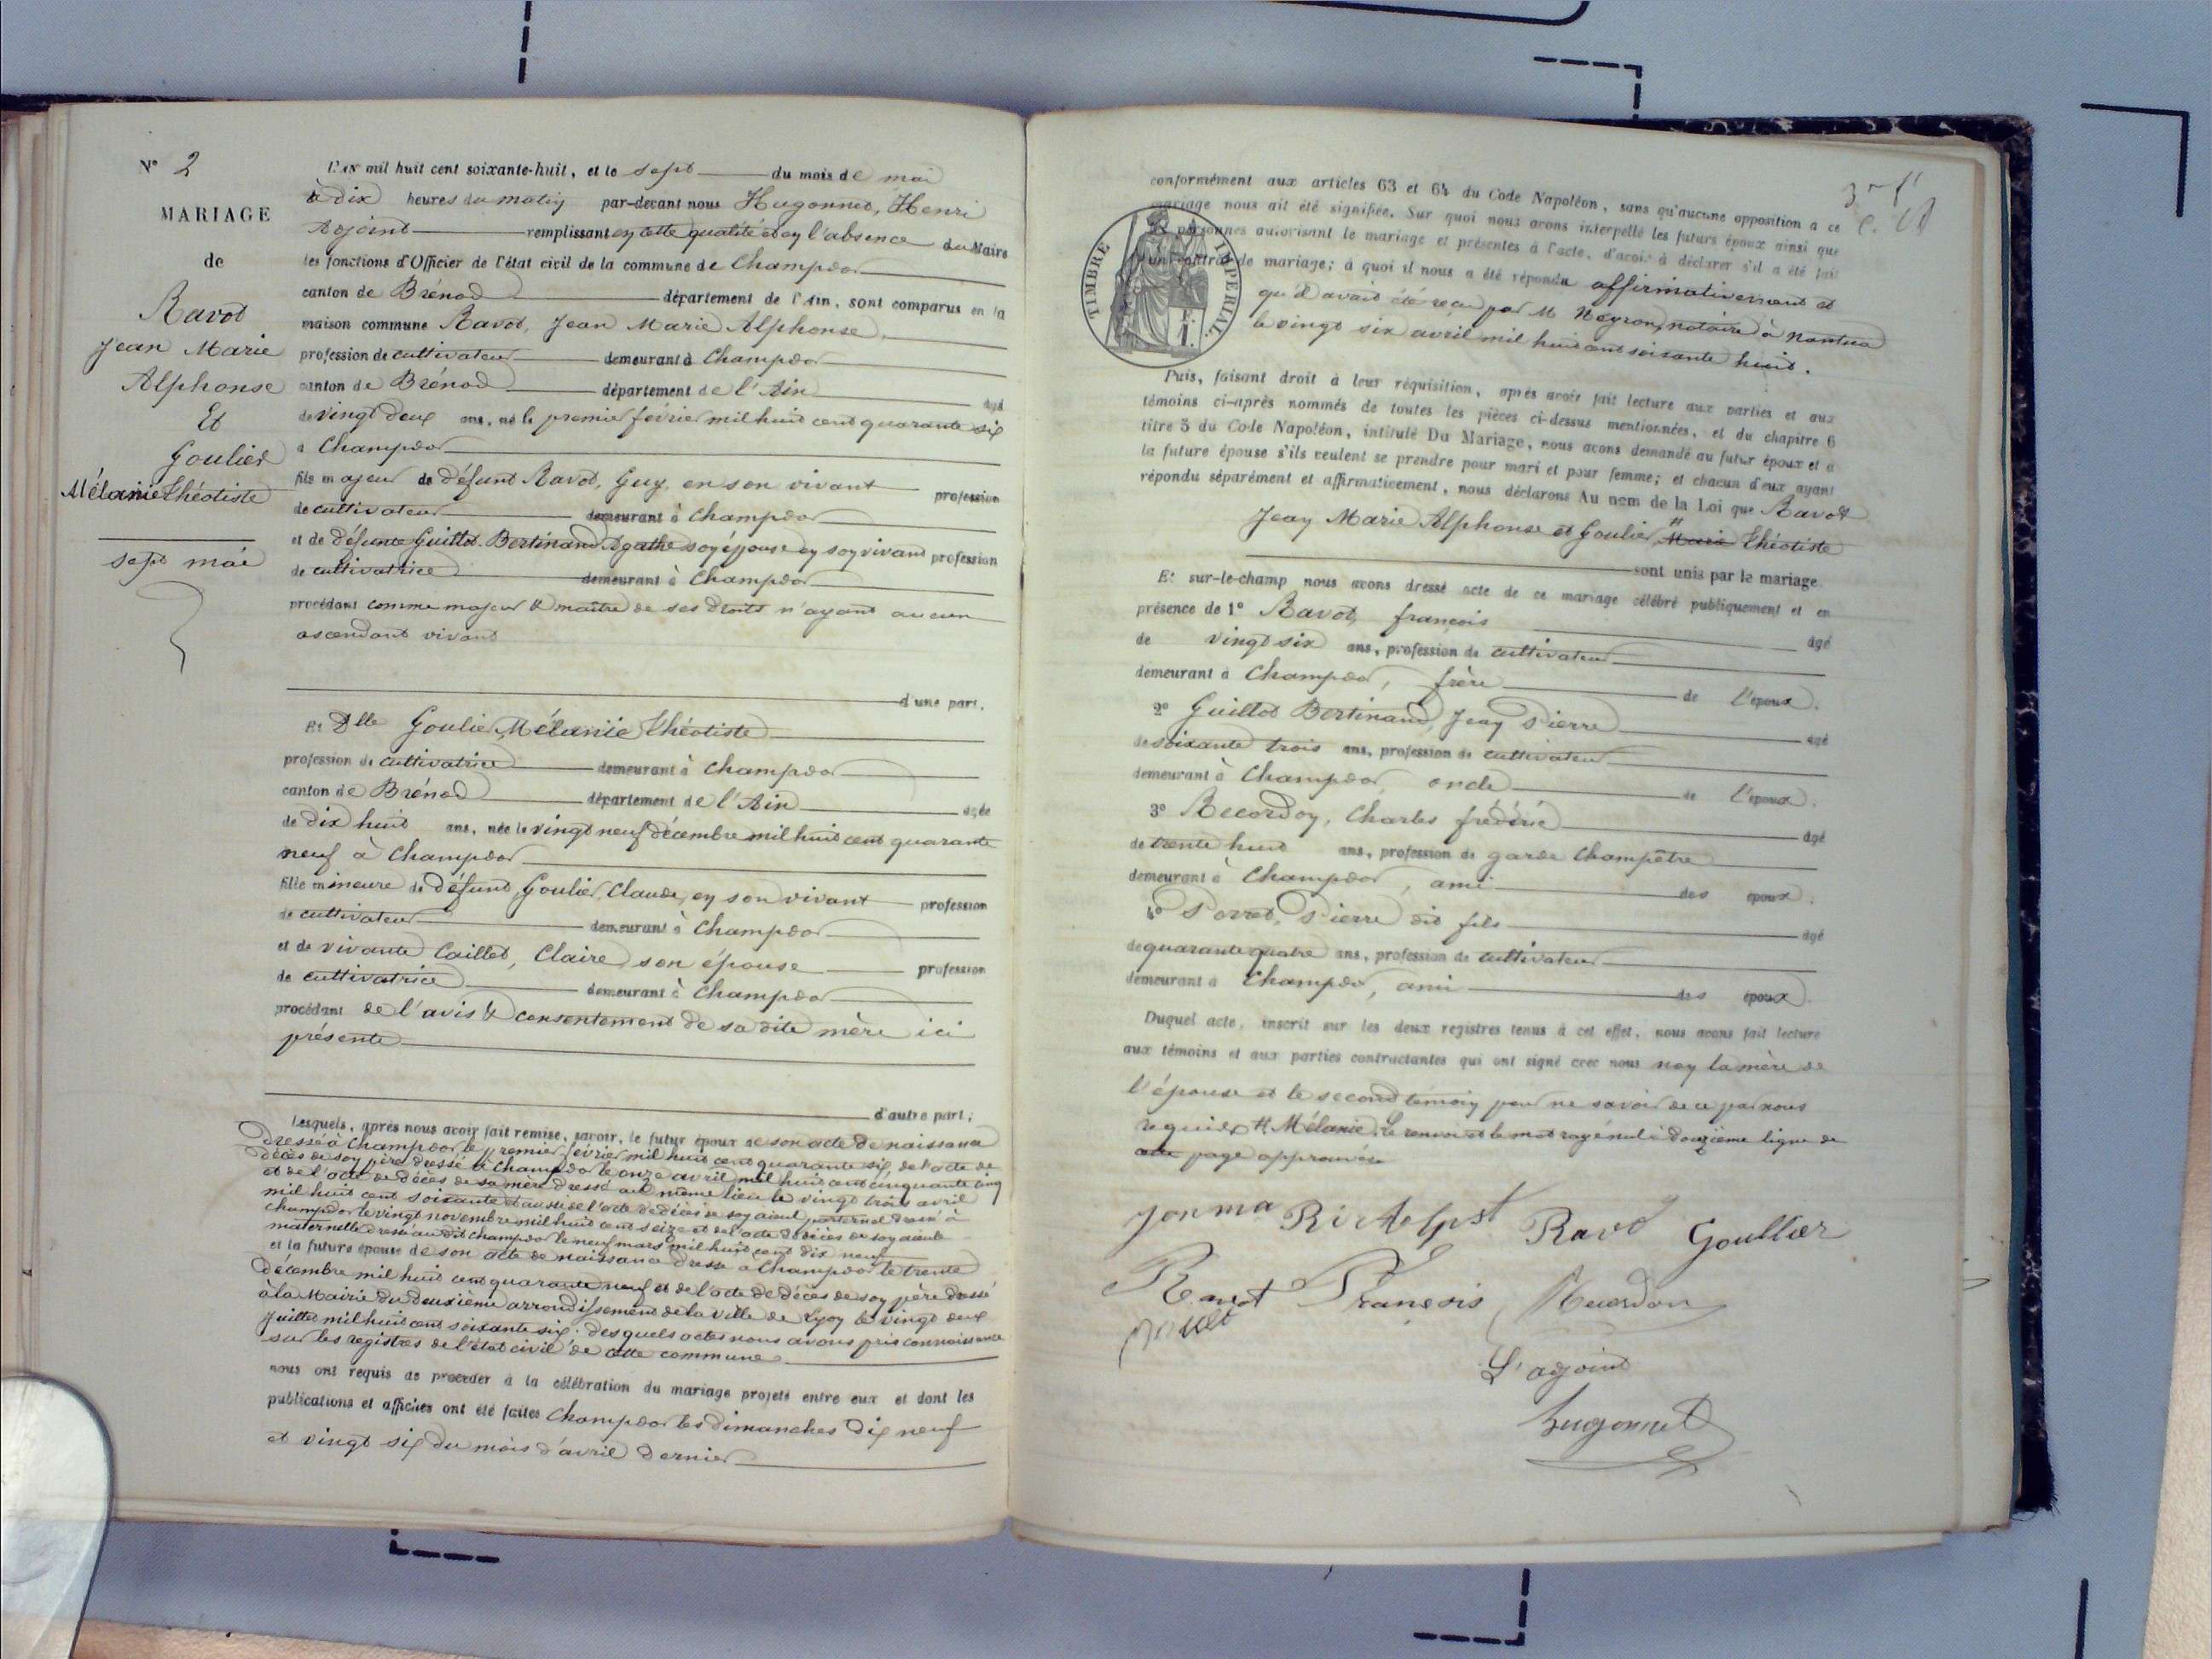 N° 2
MARIAGE
de
Ravot
Jean Marie
Alphonse
Et
Goulier
Mélanie Théotiste
sept mai
L'AN mil huit cent soixante-huit, et le sept du mois de mai
à dix heures du matin par-devant nous Hugonnet, Henri
Adjoint remplissant en cette qualité et en l'absence du Maire
les fonctions d'Officier de l'état civil de la commune de Champdor
canton de Brénod département de l'Ain, sont comparus en la
maison commune Ravot, Jean Marie Alphonse
profession de cultivateur demeurant à Champdor
canton de Brénod département de l'Ain âgé
de vingt deux ans, né le premier février mil huit cent quarante six
à Champdor
fils majeur de défunt Ravot, Guy, en son vivant profession
de cultivateur demeurant à Champdor
et de défunte Guillot-Bertinand Agathe son épouse en son vivant profession
de cultivatrice demeurant à Champdor
procédant comme majeur & maître de ses droits n'ayant aucun
ascendant vivant
d'une part,
Et Dlle Goulier, Mélanie Théotiste
profession de cultivatrice demeurant à Champdor
canton de Brénod département de l'Ain âgée
de dix huit ans, née le vingt neuf décembre mil huit cent quarante
neuf à Champdor
fille mineure de défunt Goulier, Claude, en son vivant profession
de cultivateur demeurant à Champdor
et de vivante Caillet, Claire son épouse profession
de cultivatrice demeurant à Champdor
procédant de l'avis & consentement de sa dite mère ici
présente
d'autre part;
Lesquels, après nous avoir fait remise, savoir, le futur époux de son acte de naissance
dressé à Champdor le premier février mil huit cent quarante six, de l'acte de
décès de son père dressé à Champdor le onze avril mil huit cent cinquante cinq
et de l'acte de décès de sa mère dressé au même lieu le vingt trois avril
mil huit cent soixante et aussi de l'acte de décès de son aïeul paternel dressé à
Champdor le vingt novembre mil huit cent seize et de l'acte de décès de son aïeule
maternelle dressé au dit Champdor le neuf mars mil huit cent dix neuf
et la future épouse de son acte de naissance dressé à Champdor le trente
décembre mil huit cent quarante neuf et de l'acte de décès de son père dressé
à la Mairie du deuxième arrondissement de la ville de Lyon le vingt deux
Juillet mil huit cent soixante six. desquels actes nous avons pris connaissance
sur les registres de l'état civil de cette commune
nous ont requis de procéder à la célébration du mariage projeté entre eux et dont les
publications et affiches ont été faites Champdor les dimanches dix neuf
et vingt six du mois d'avril dernier
conformément aux articles 63 et 64 du Code Napoléon, sans qu'aucune opposition a ce
mariage nous ait été signifiée. Sur quoi nous avons interpellé les futurs époux ainsi que
les personnes autorisant le mariage et présentes à l'acte, d'avoir à déclarer s'il a été fait
un contrat de mariage; à quoi il nous a été répondu affirmativement et
qu'il avait été reçu par M Neyron, notaire à Nantua
le vingt six avril mil huit cent soixante huit.
TIMBRE IMPERIAL
Puis, faisant droit à leur réquisition, après avoir fait lecture aux parties et aux
témoins ci-après nommés de toutes les pièces ci-dessus mentionnées, et du chapitre 6
titre 5 du Code Napoléon, intitulé Du Mariage, nous avons demandé au futur époux et à
la future épouse s'ils veulent se prendre pour mari et pour femme; et chacun d'eux ayant
répondu séparément et affirmativement, nous déclarons Au nom de la Loi que Ravot
Jean Marie Alphonse et Goulier, # Marie Théotiste
sont unis par le mariage.
Et sur-le-champ nous avons dressé acte de ce mariage célébré publiquement et en
présence de 1° Ravot, françois âgé
de vingt six ans, profession de cultivateur
demeurant à Champdor, frère de l'époux.
2° Guillot Bertinand, Jean Pierre âgé
de soixante trois ans, profession de cultivateur
demeurant à Champdor, oncle de l'époux.
3° Recordon, Charles frédéric âgé
de trente huit ans, profession de garde Champêtre
demeurant à Champdor, ami des époux.
4° Porret, Pierre dit fils âgé
de quarante quatre ans, profession de cultivateur
demeurant à Champdor, ami des époux.
Duquel acte, inscrit sur les deux registres tenus à cet effet, nous avons fait lecture
aux témoins et aux parties contractantes qui ont signé avec nous non la mère de
l'épouse et le second témoin pour ne savoir de ce par nous
requis # Mélanie. Le renvoi et le mot rayé nul à douzième ligne de
page approuvés
Ravot Goullier
Ravot François Recordon
L'adjoint
hugonnet